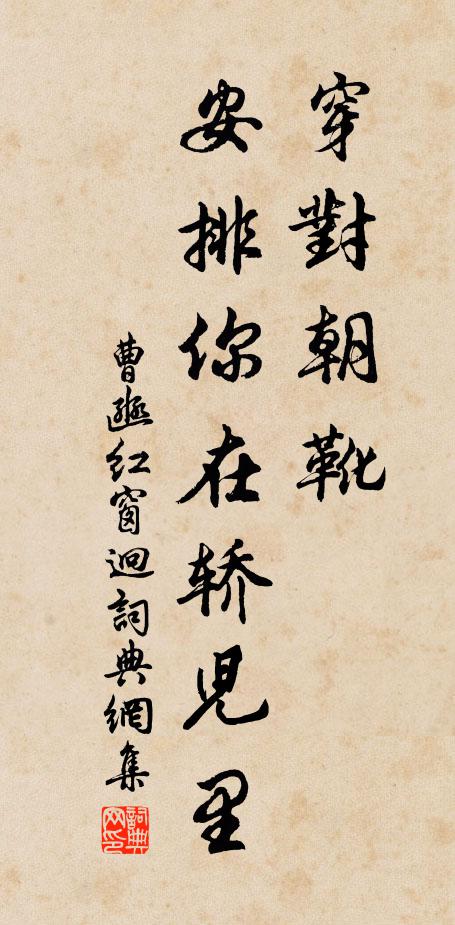 穿對朝靴
安排你在轿兒里
曹豳红窗迥詞典網集
詞典网印